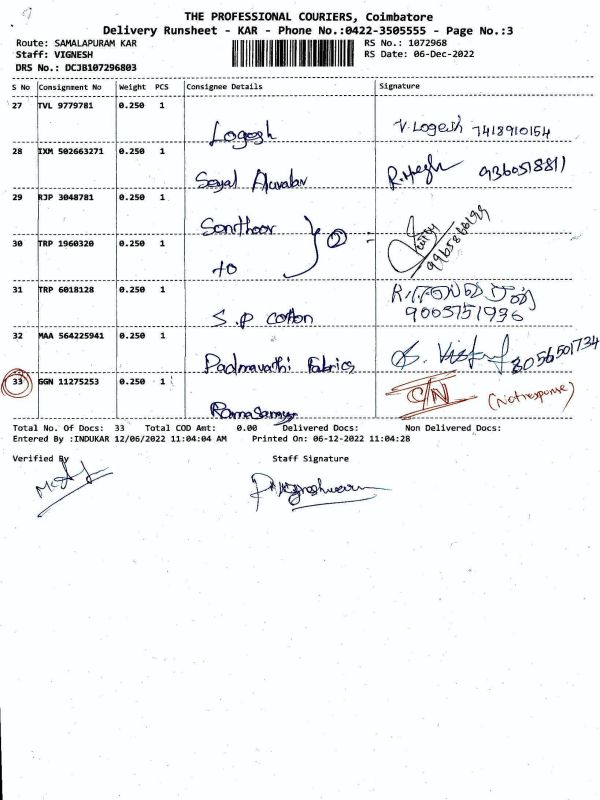 THE PROFESSIONAL COURIERS, Coimbatore
Delivery Runsheet - KAR - Phone No.:0422-3505555 - Page No.:3
Route: SAMALAPURAM KAR RS No.: 1072968
Staff: VIGNESH RS Date: 06-Dec-2022
DRS No.: DCJB107296803
S No Consignment No Weight PCS Consignee Details Signature
27 TVL 9779781 0.250 1
Logesh V. Logesh 7418910154
28 IXM 502663271 0.250 1
9360518811
29 RJP 3048781 0.250 1
30 TRP 1960320 0.250 1
to 2
31 TRP 6018128 0.250 1
S.P cotton 9005751936
32 MAA 564225941 0.250 1
Padmavathi Fabrics 8056501734
33 GGN 11275253 0.250 1
Ramasamy C/N (Not response)
Total No. Of Docs: 33 Total COD Amt: 0.00 Delivered Docs: Non Delivered Docs:
Entered By :INDUKAR 12/06/2022 11:04:04 AM Printed On: 06-12-2022 11:04:28
Verified By Staff Signature